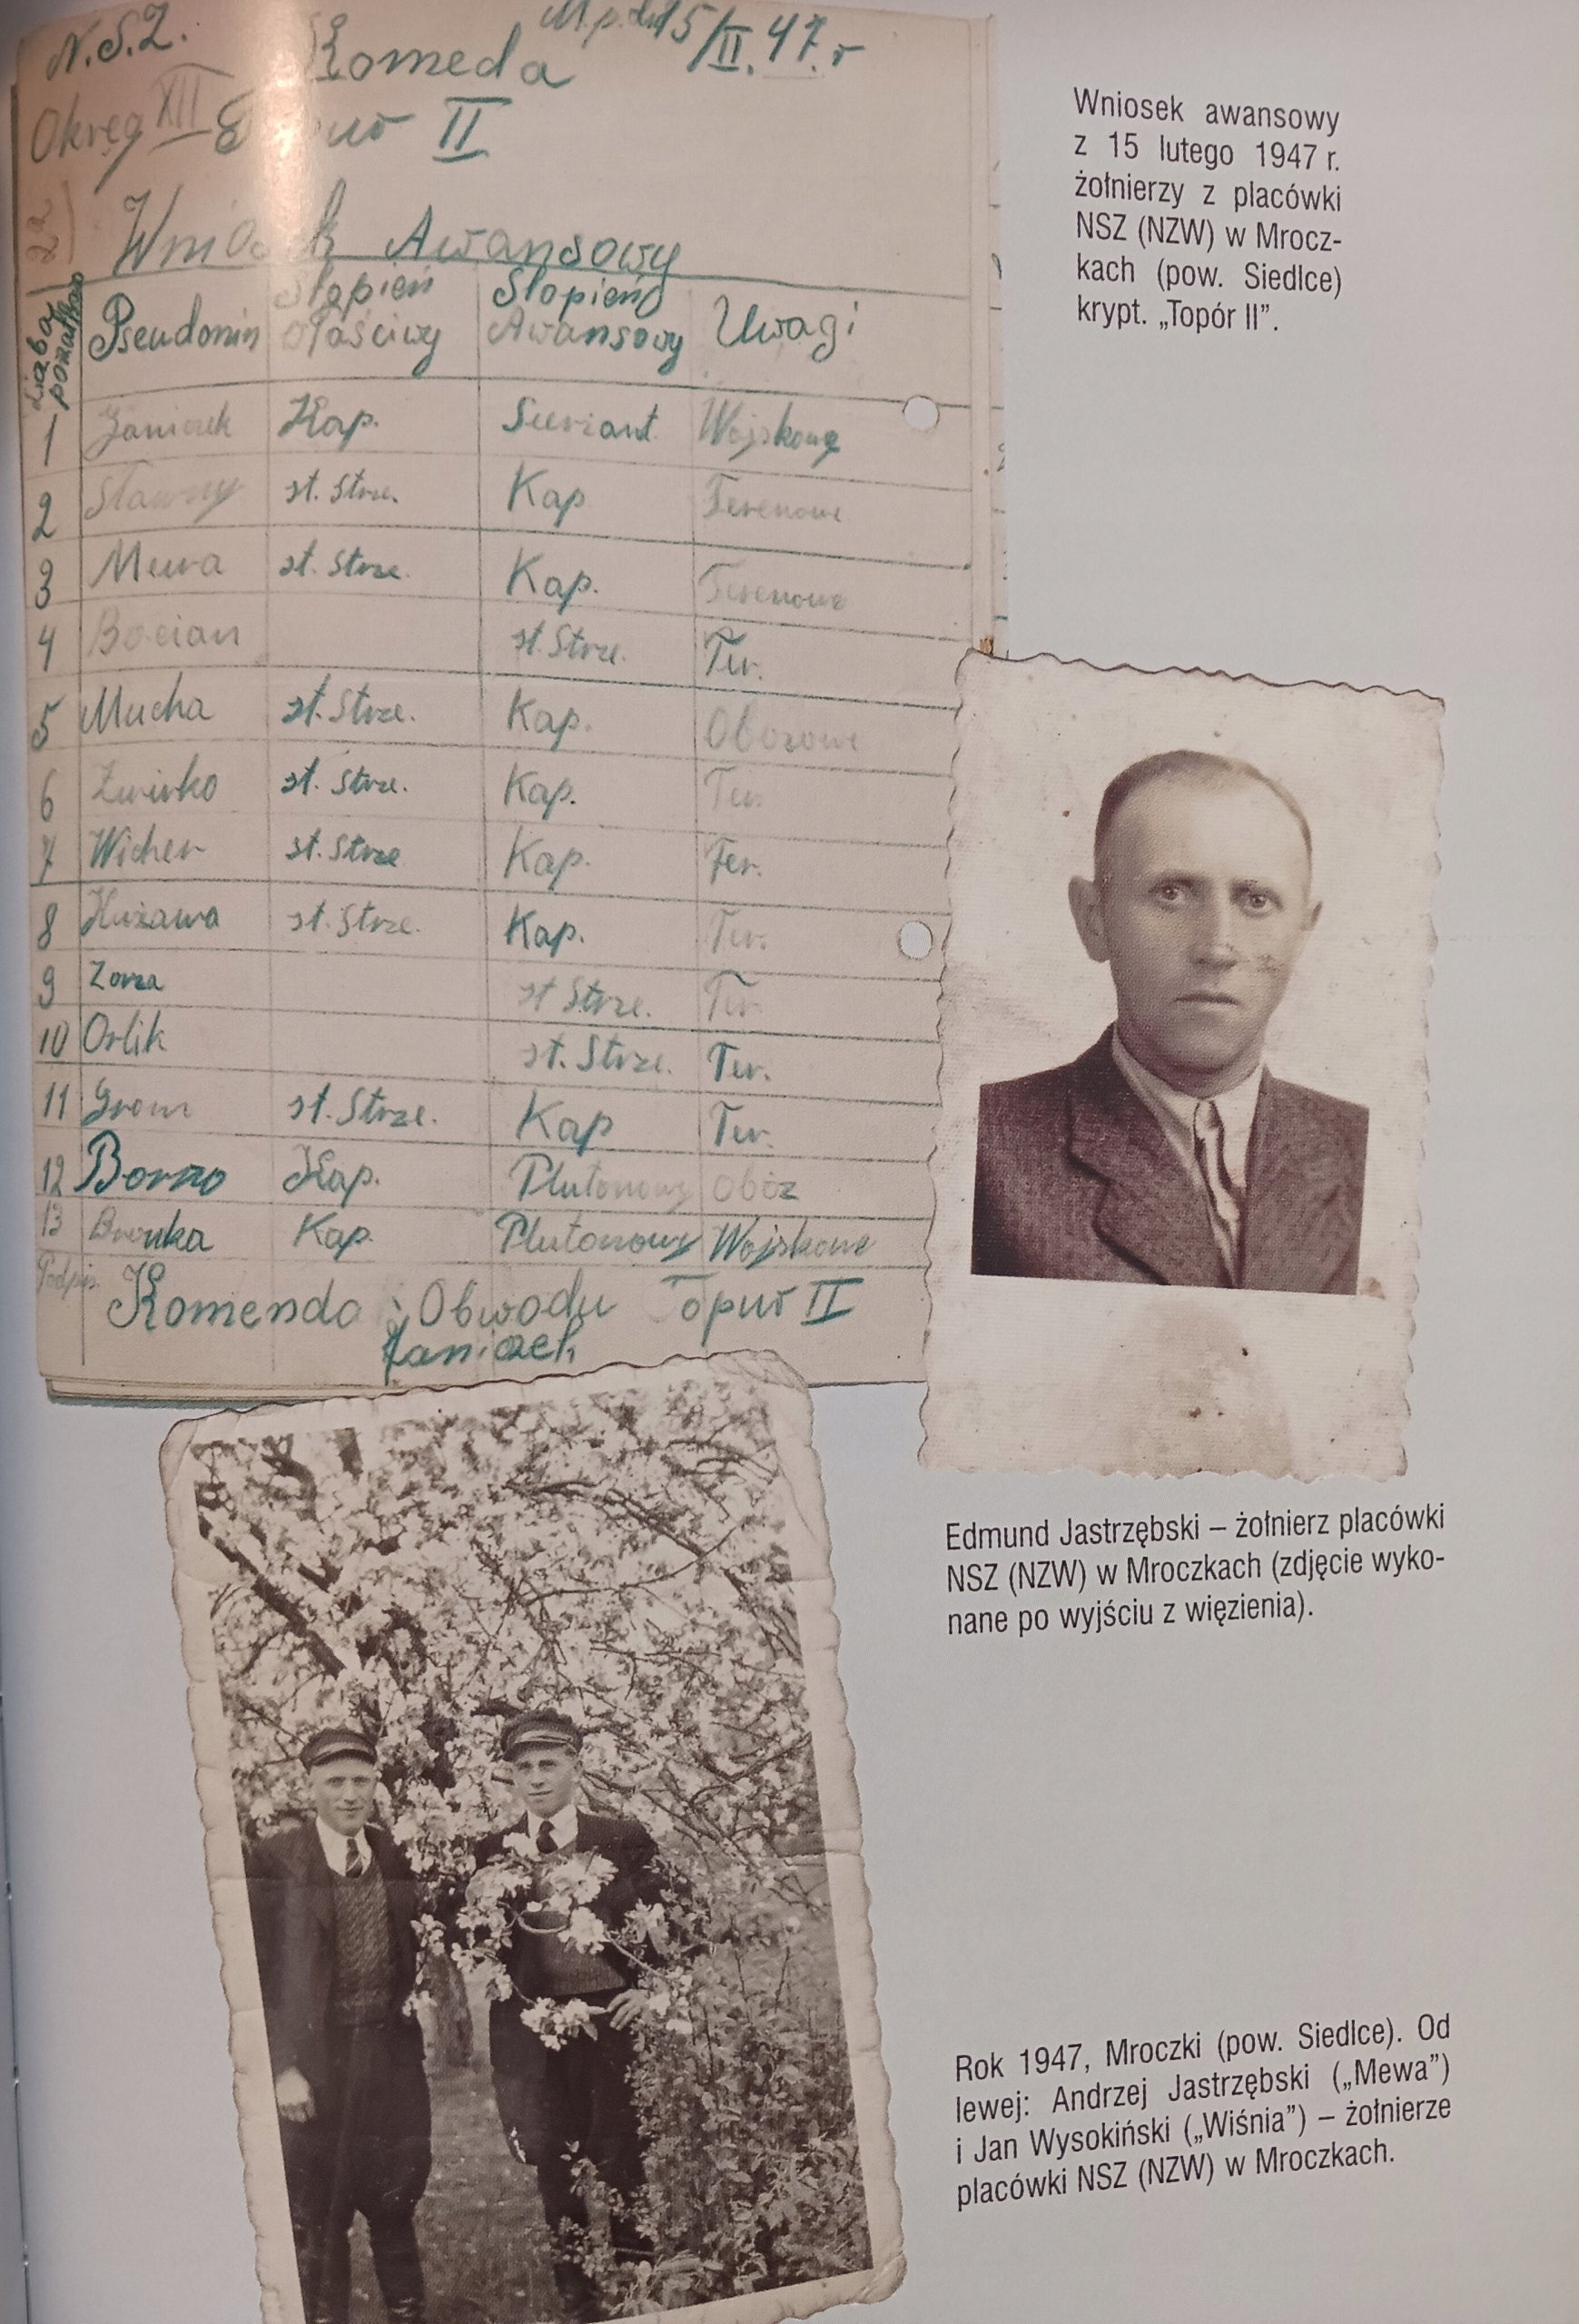 N.S.Z. Komeda M.p. dn 15/II.47.r
Okręg XII II
Wniosek Awansowy
Liczba porządkowa Pseudonim Stopień Stopień Uwagi
właściwy Awansowy
1 Janiczek Kap. Sierżant Wojskowe
2 Sławny st. Strze. Kap Terenowe
3 Mewa st. Strze. Kap. Terenowe
4 Bocian st. Strze. Ter.
5 Mucha st. Strze. Kap. Obozowe
6 Żwirko st. Strze. Kap. Ter.
7 Wicher st. Strze Kap. Ter.
8 st. Strze. Kap. Ter.
9 Zorza st Strze. Ter.
10 Orlik st. Strze. Ter.
11 Grom st. Strze. Kap Ter.
12 Kap. Plutonowy Oboz
13 Kap. Plutonowy Wojskowe
Podpis. Komenda Obwodu Topur II
Janiczek
Wniosek awansowy
z 15 lutego 1947 r.
żołnierzy z placówki
NSZ (NZW) w Mrocz-
kach (pow. Siedlce)
krypt. „Topór II”.
Edmund Jastrzębski – żołnierz placówki
NSZ (NZW) w Mroczkach (zdjęcie wyko-
nane po wyjściu z więzienia).
Rok 1947, Mroczki (pow. Siedlce). Od
lewej: Andrzej Jastrzębski („Mewa”)
i Jan Wysokiński („Wiśnia”) – żołnierze
placówki NSZ (NZW) w Mroczkach.